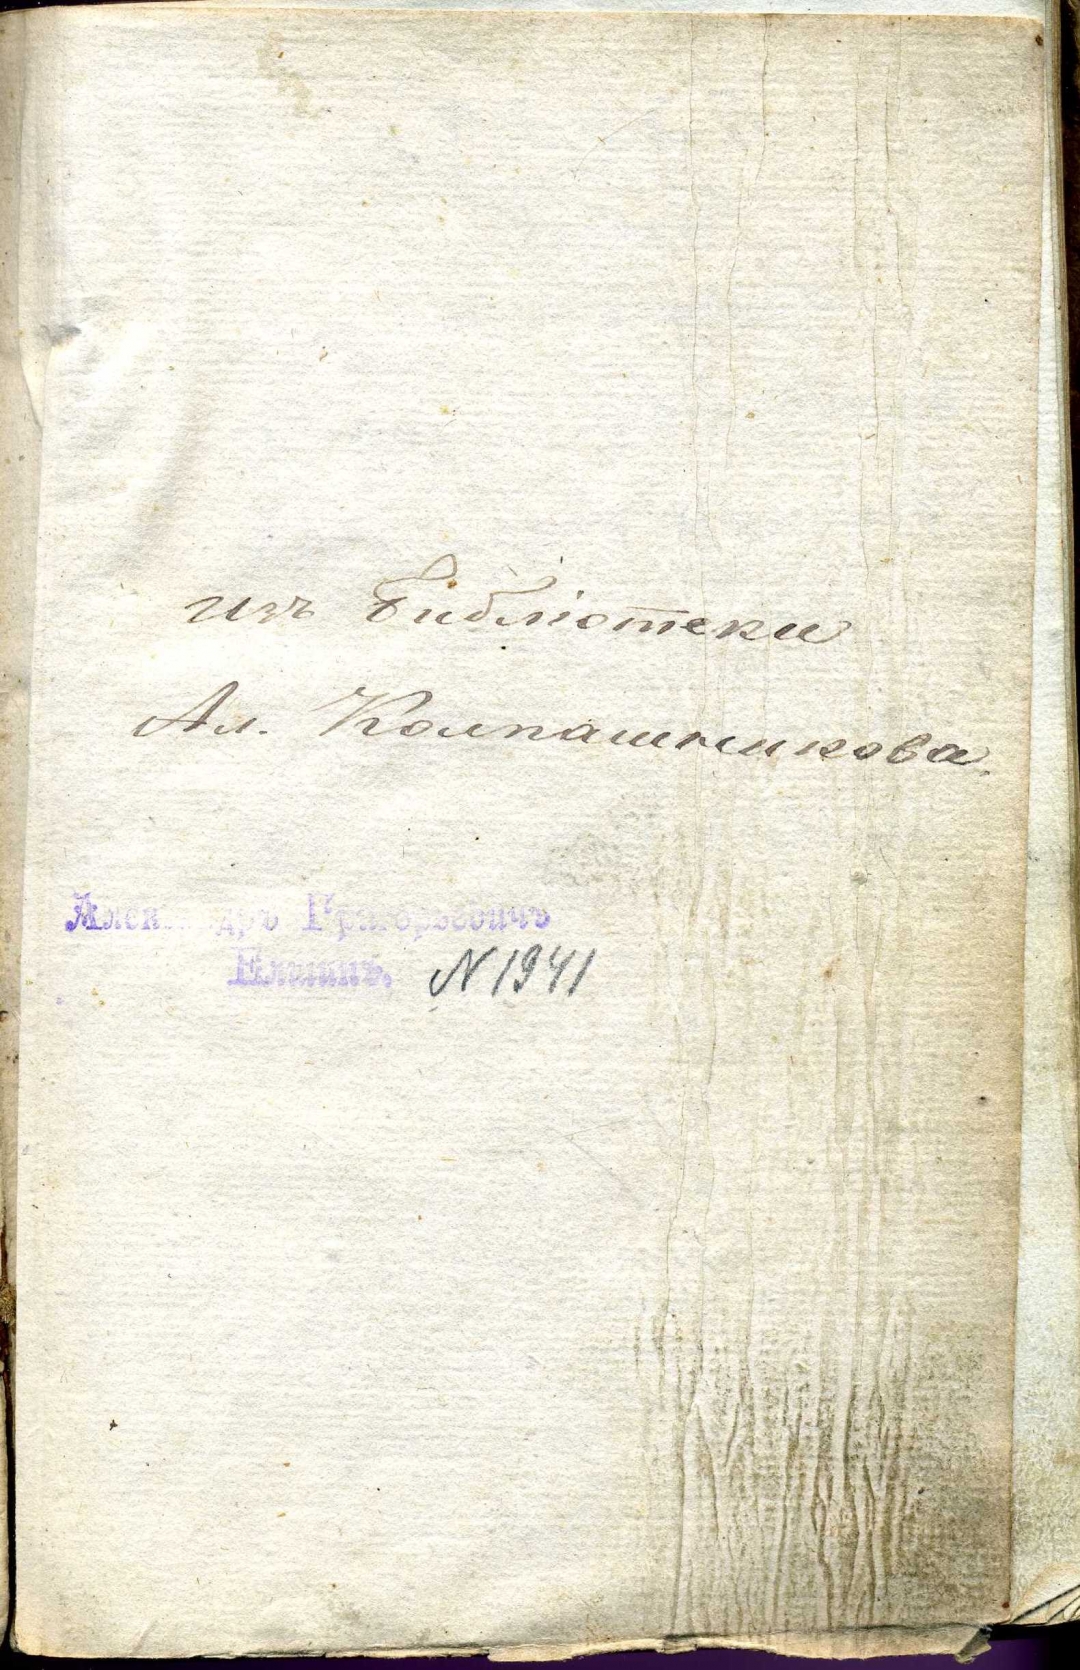 изъ Библіотеки
Ал. Колпашникова.
Александръ Григорьевичъ
N 1941